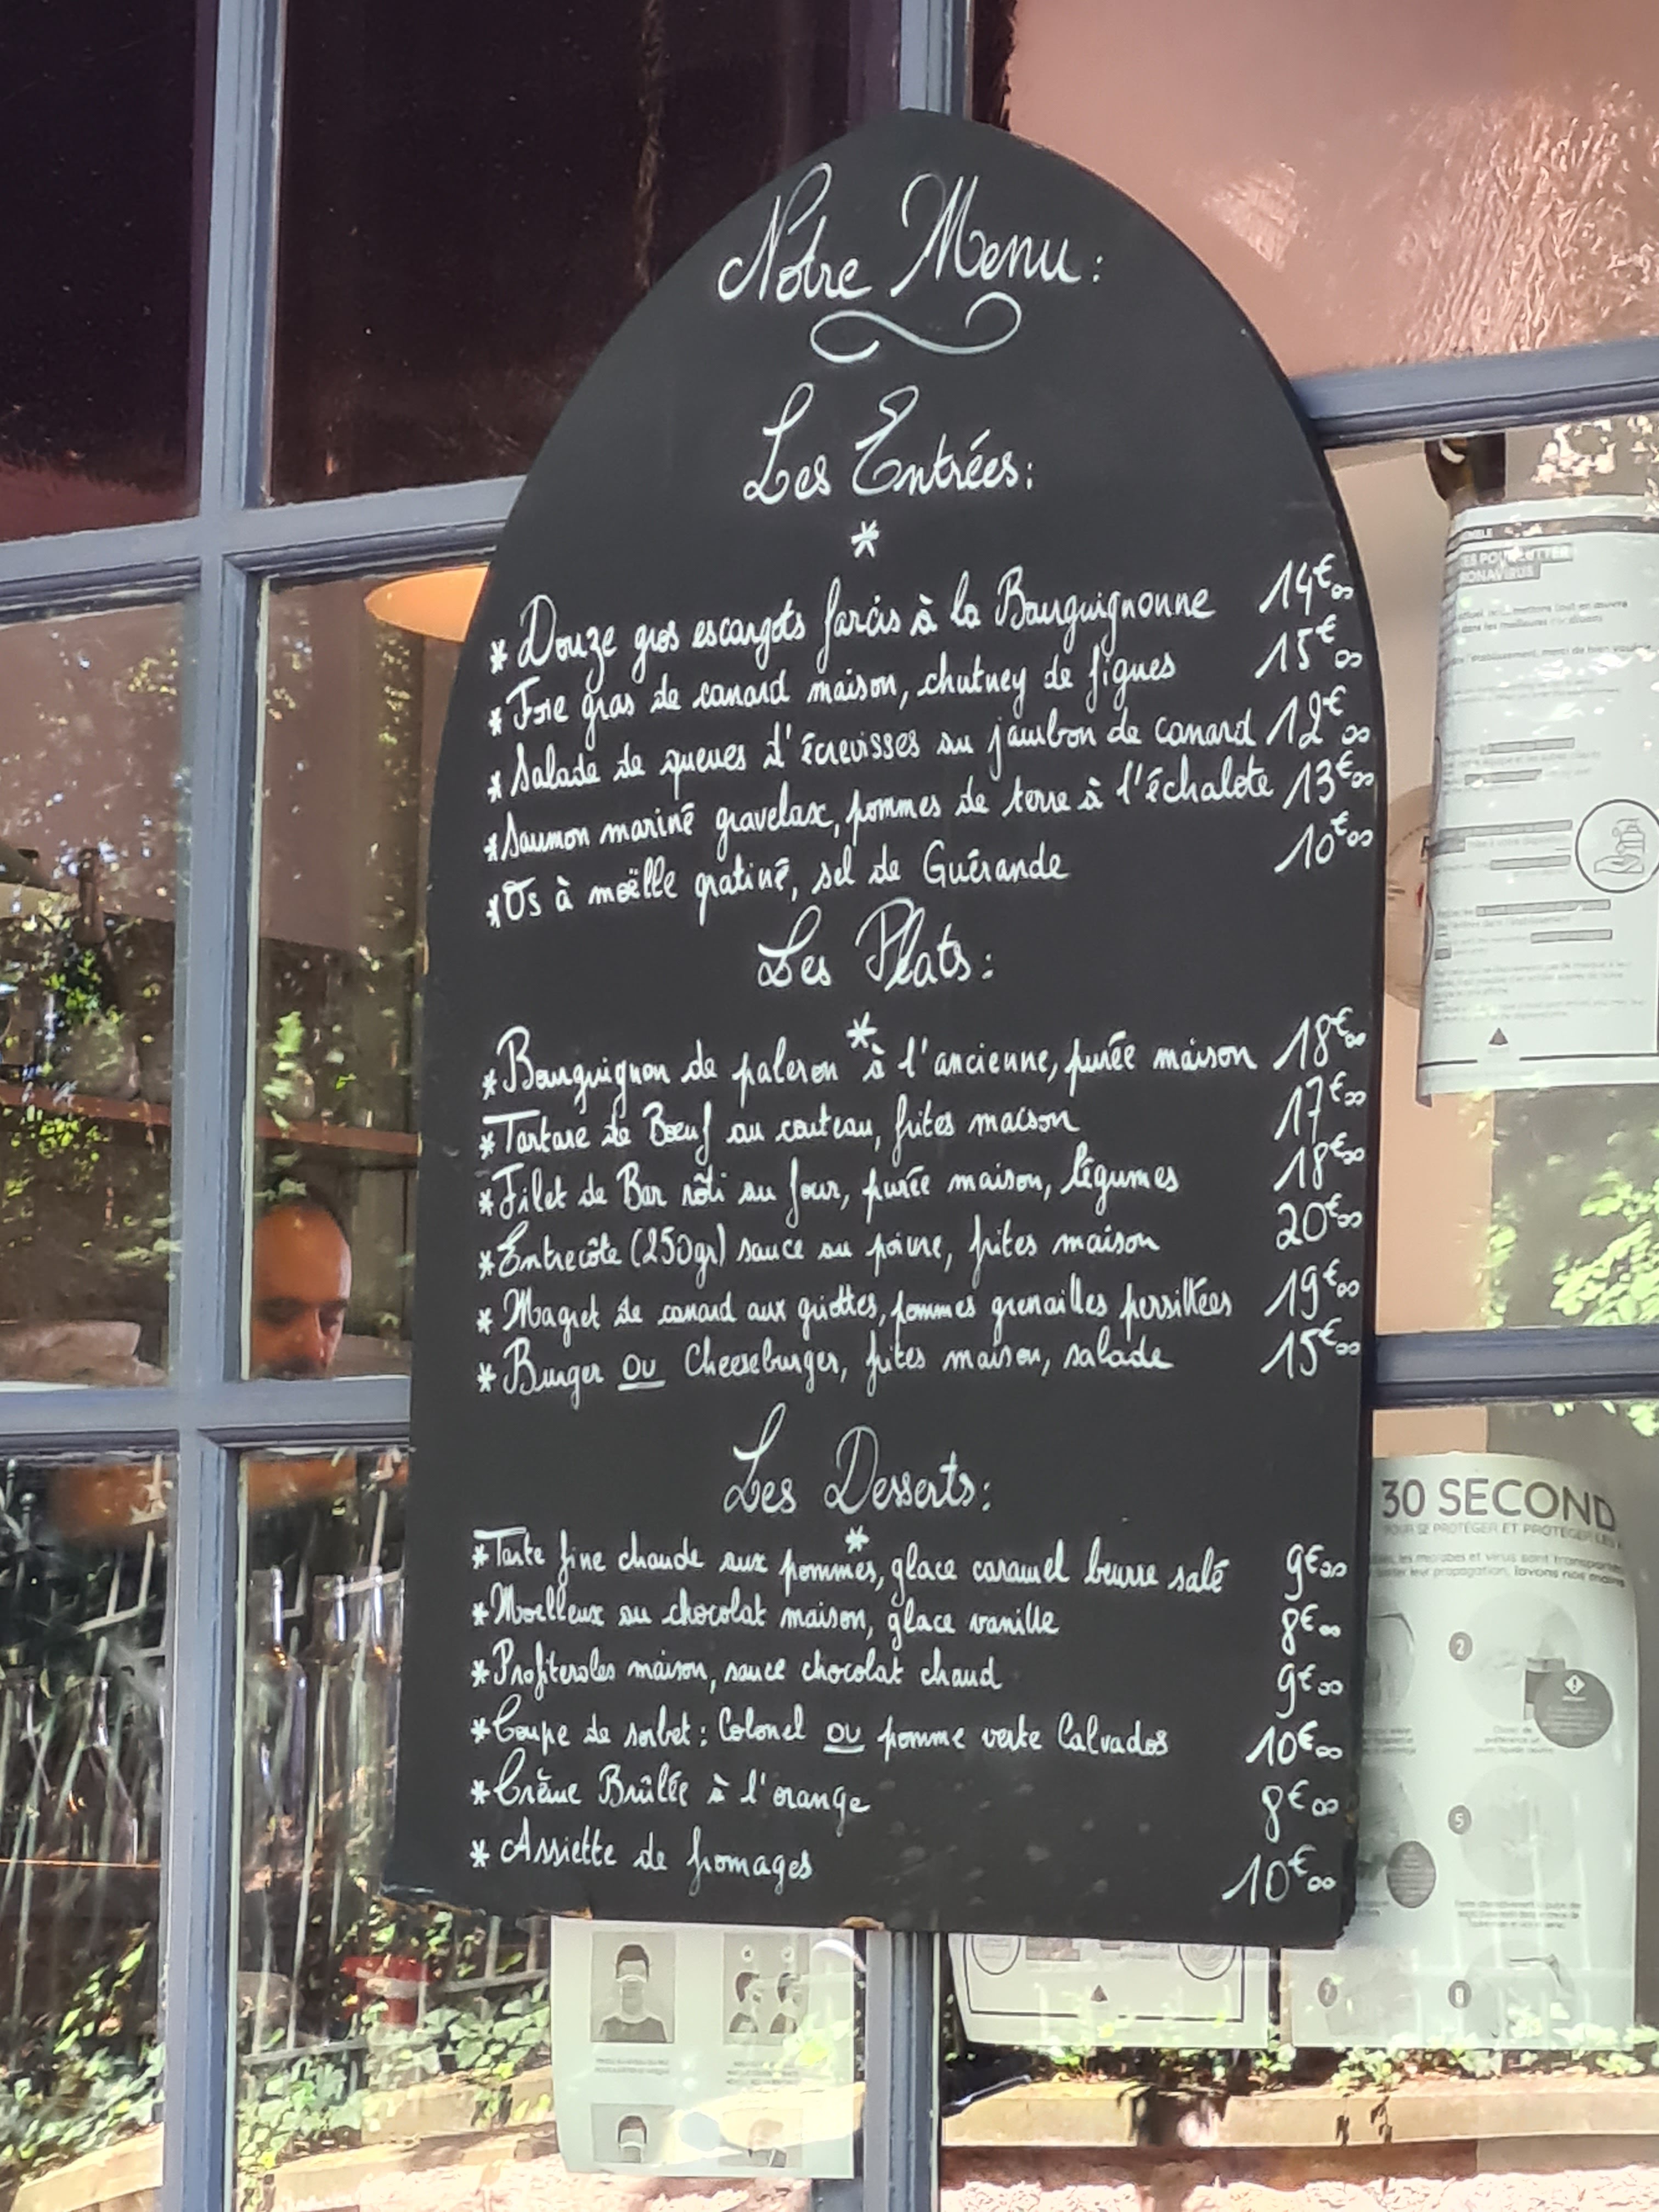 Notre Menu :
Les Entrées :
*
* Douze gros escargots farcis à la Bourguignonne 14€00
* Foie gras de canard maison, chutney de figues 15€00
* Salade de queues d'écrevisses au jambon de canard 12€00
* Saumon mariné gravelax, pommes de terre à l'échalote 13€00
* Os à moëlle gratiné, sel de Guérande 10€00
Les Plats :
*
* Bourguignon de paleron à l'ancienne, purée maison 18€00
* Tartare de Bœuf au couteau, frites maison 17€00
* Filet de Bar rôti au four, purée maison, légumes 18€00
* Entrecôte (250gr) sauce au poivre, frites maison 20€00
* Magret de canard aux griottes, pommes grenailles persillées 19€00
* Burger OU Cheeseburger, frites maison, salade 15€00
Les Desserts :
*
* Tarte fine chaude aux pommes, glace caramel beurre salé 9€00
* Moelleux au chocolat maison, glace vanille 8€00
* Profiteroles maison, sauce chocolat chaud 9€00
* Coupe de sorbet : Colonel OU pomme verte Calvados 10€00
* Crème Brûlée à l'orange 8€00
* Assiette de fromages 10€00
30 SECOND
POUR SE PROTÉGER ET PROTÉGER LES
2
5
7
8